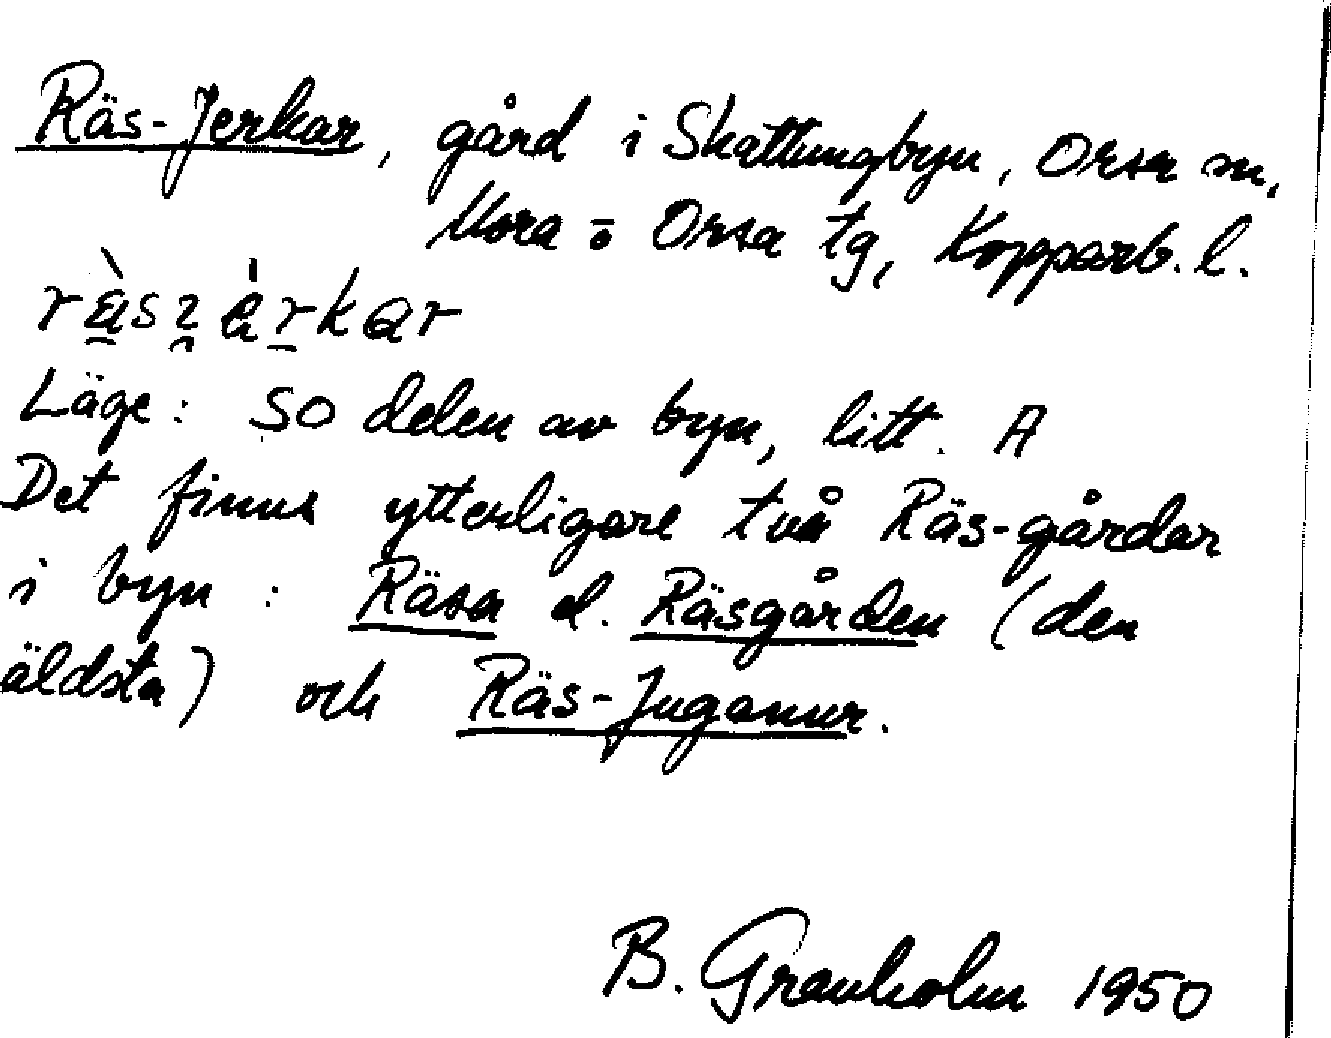 Räs-Jerkar, gård i Skattungbyn, Orsa sn,
Mora o Orsa tg, Kopparb. l.
Läge: SO delen av byn, litt. A
Det finns ytterligare två Räs-gårdar
i byn: Räsa el. Räsgården (den
äldsta) och Räs-Jugamur.
B. Granholm 1950